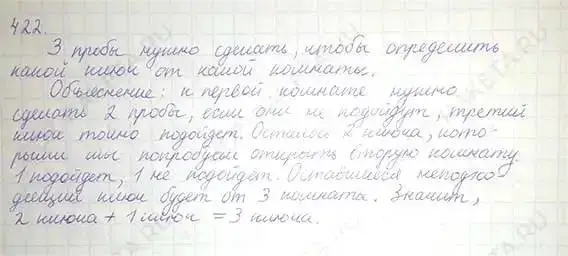 422.
3 пробы нужно сделать, чтобы определить
какой ключ от какой комнаты.
Объяснение: к первой комнате нужно
сделать 2 пробы, если они не подойдут, третий
ключ точно подойдет. Осталось 2 ключа, кото-
рыми мы попробуем открыть вторую комнату.
1 подойдет, 1 не подойдет. Оставшийся неподхо-
дящий ключ будет от 3 комнаты. Значит,
2 ключа + 1 ключ = 3 ключа.